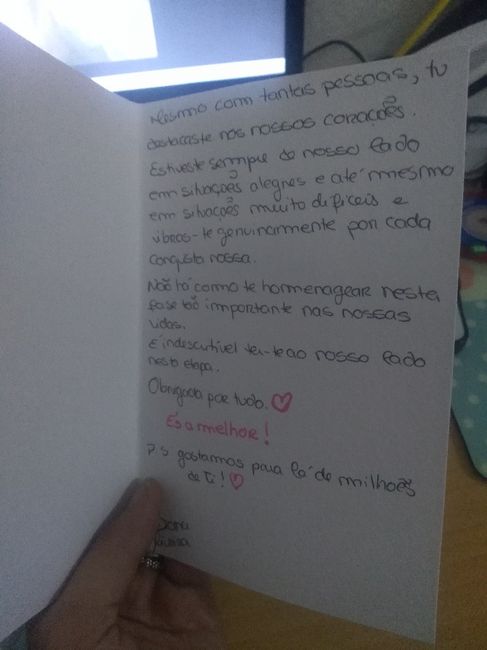 Mesmo com tantas pessoas, tu
destacaste nos nossos corações.
Estiveste sempre do nosso lado
em situações alegres e até mesmo
em situações muito difíceis e
vibras-te genuinamente por cada
conquista nossa.
Não há como te homenagear nesta
fase tão importante nas nossas
vidas.
É indescutível ter-te ao nosso lado
nesta etapa.
Obrigada por tudo.
És a melhor!
PS gostamos para lá de milhões
de ti!